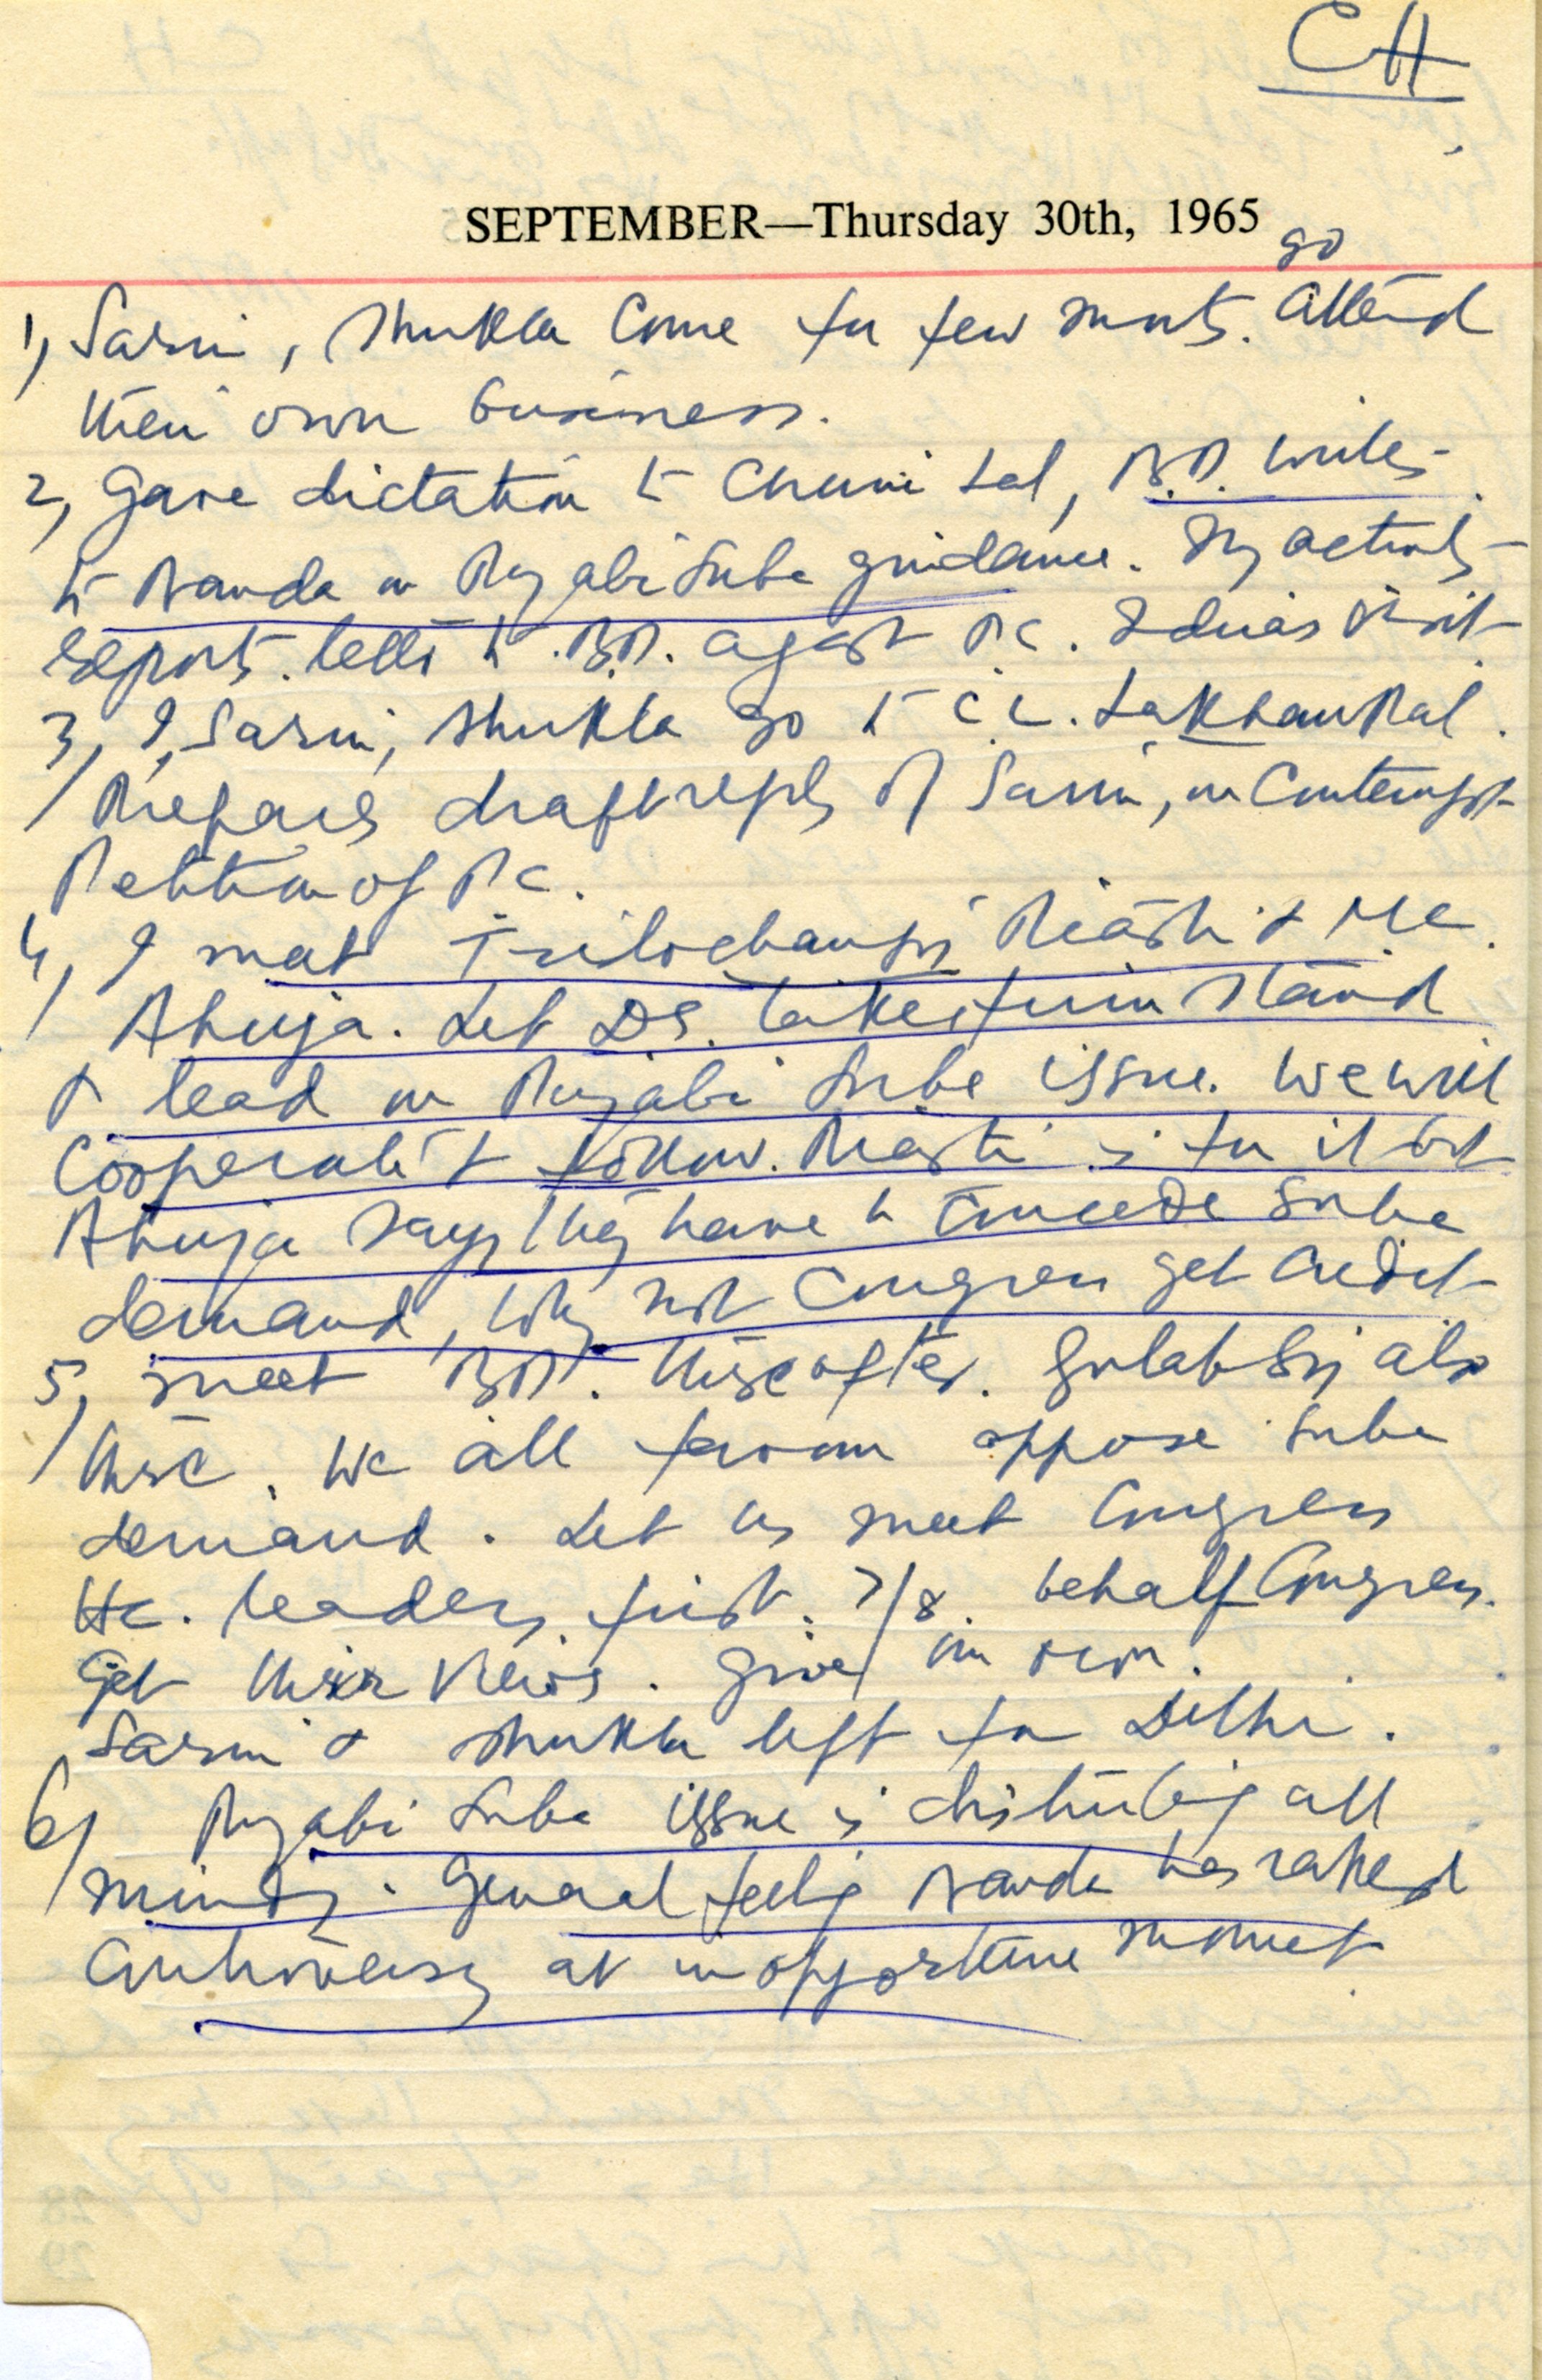 CH
SEPTEMBER—Thursday 30th, 1965
go
1, Sarin, Shukla Come for few munts. attend
their own business.
2, Gave dictation to Chuni Lal, B.D. writes
to Nanda on Punjabi Suba guidance. My activity
reports. letter to B.D. against P.C. visit
3, I, Sarin, Shukla go to C.L. LakhanPal.
Prepares draft reply of Sarin, on Contempt
Petition of P.C.
4, I meet Trilochan Riasti &
Ahuja. Let DS. take firm stand
& lead on Punjabi Suba issue. We will
Cooperate & follow. Riasti is for it but
Ahuja says they have to Concede Suba
demand, why not Congress get Credit
5, meet B.D. thereafter. Gulab Singh also
there. We all oppose Suba
demand. Let us meet Congress
H.C. leaders first. 7/8. behalf Congress.
Get their views. Give
Sarin & Shukla left for Delhi.
6, Punjabi Suba issue is disturbing all
minds. General feeling Nanda has raked
Controversy at inopportune moment